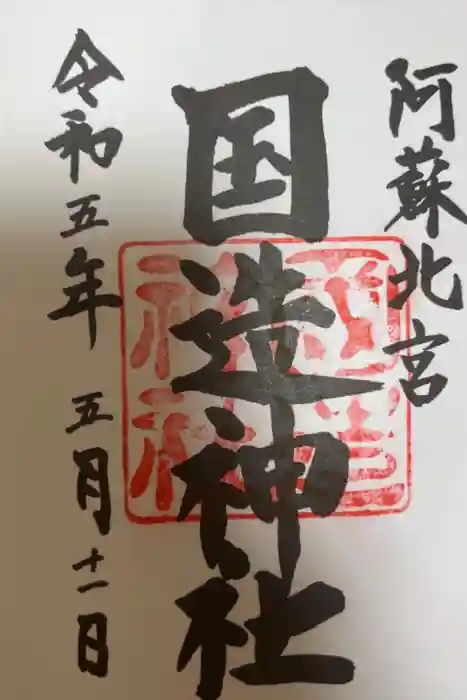 阿蘇北宮
国造神社
令和五年 五月十一日